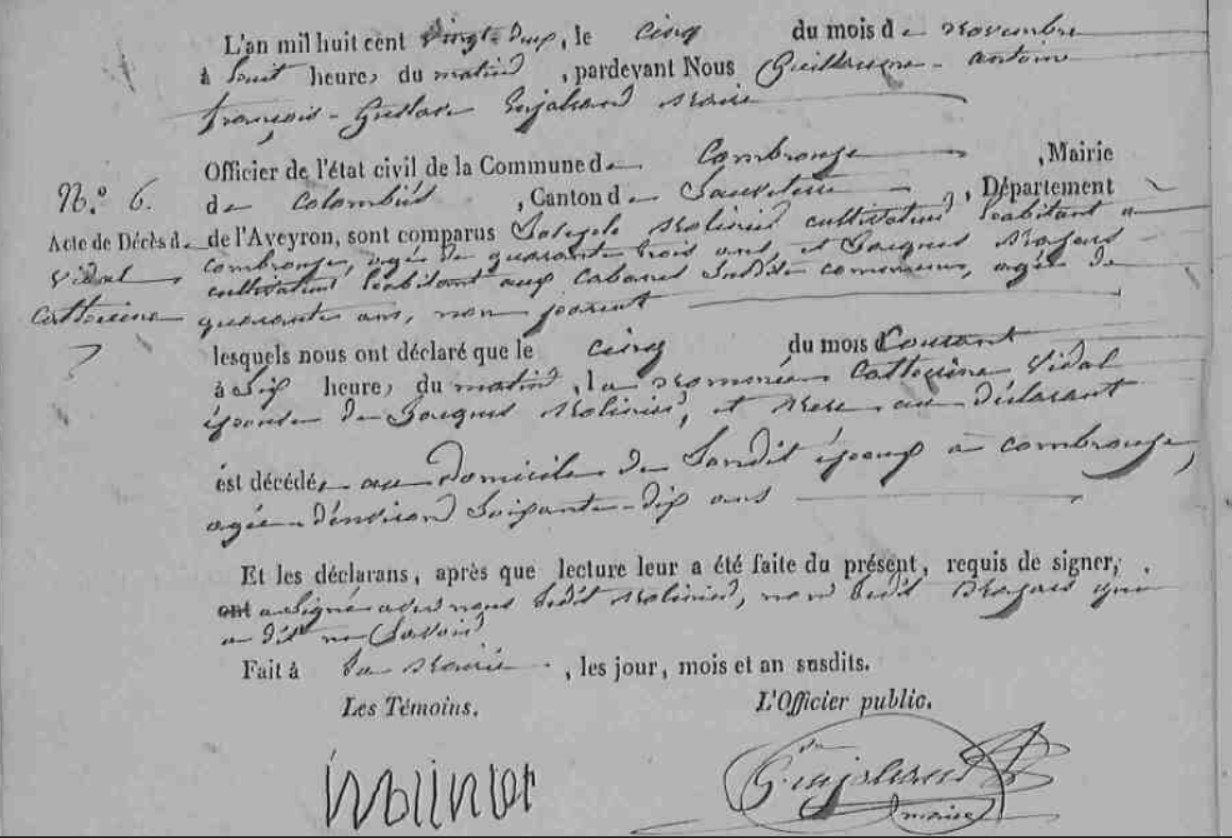 L'an mil huit cent vingt-deux, le cinq du mois de novembre
à huit heures du matin, pardevant Nous Guillaume - antoine
françois - Gustave Enjalrand Maire
Officier de l'état civil de la Commune de Combrouze, Mairie
N.º 6. de Colombiés, Canton de Sauveterre, Département
Acte de Décès de de l'Aveyron, sont comparus Molinié cultivateur habitant à
Vidal combrouze, agé de quarante trois ans, et Jacques
cultivateur habitant aux Cabanes susdite commune, agé de
Catherine quarante ans, non parent
lesquels nous ont déclaré que le cinq du mois Courant
à Six heures du matin, la nommée Catherine Vidal
épouse de Jacques Molinié, et Mere au déclarant
est décédée au Domicile de Sondit époux à combrouze,
agée d'environ Soixante-dix ans
Et les déclarans, après que lecture leur a été faite du présent, requis de signer,
ont a Signé avec nous ledit Molinié, non ledit qui
a dit ne Savoir
Fait à la Mairie, les jour, mois et an susdits.
Les Témoins. L'Officier public.
molinier Enjalrand
maire